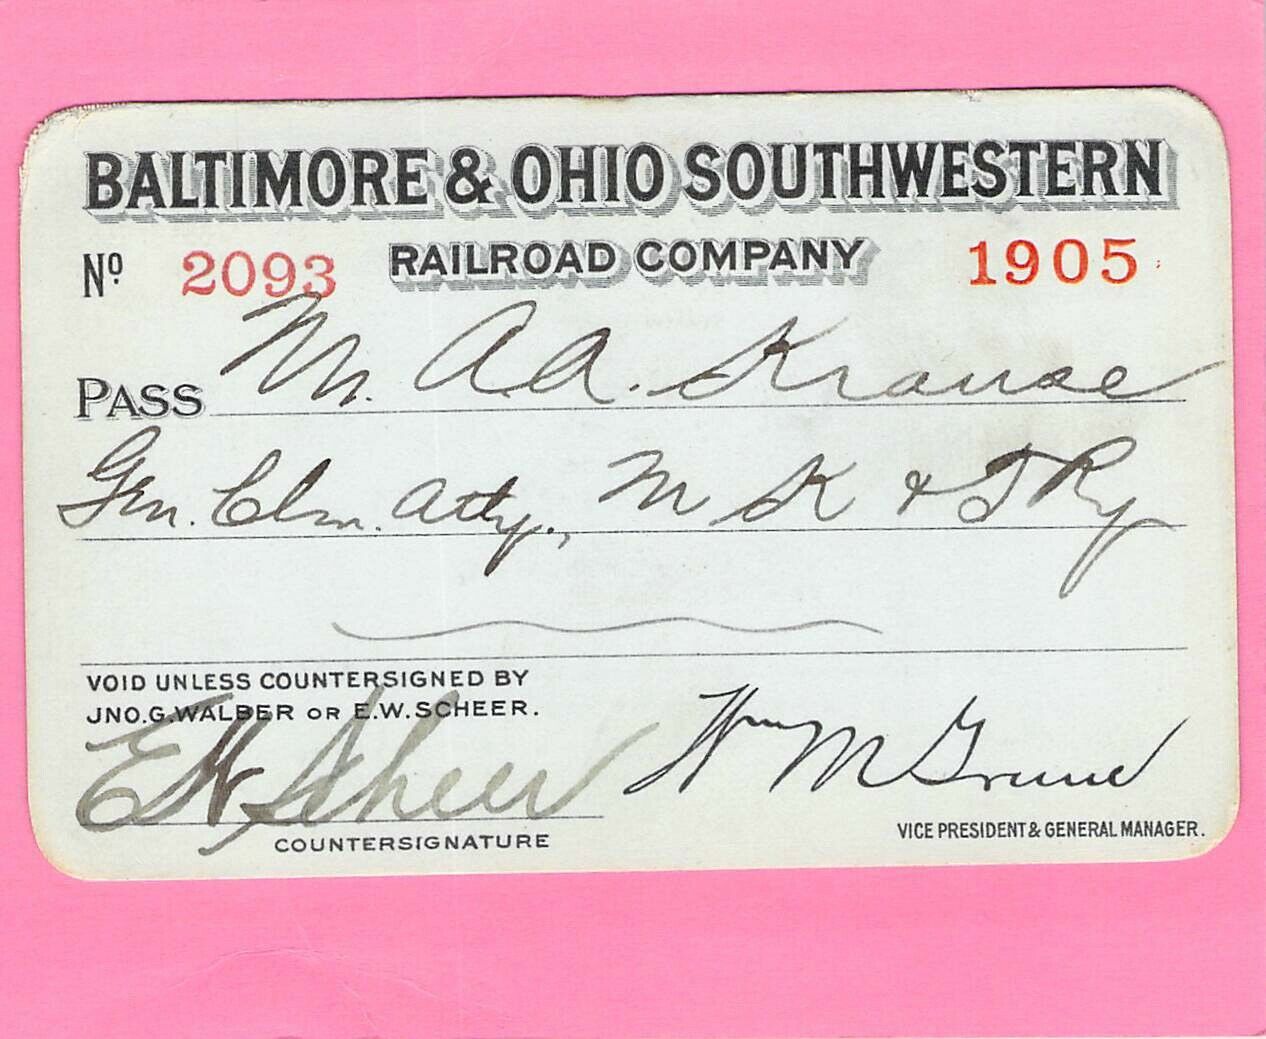 BALTIMORE & OHIO SOUTHWESTERN
RAILROAD COMPANY
Nº 2093
1905
PASS M. A.A. Krause
Gen. Clm. Atty., M K & T Ry
VOID UNLESS COUNTERSIGNED BY
JNO.G.WALBER OR E.W.SCHEER.
EW Scheer
COUNTERSIGNATURE
Wm M Greene
VICE PRESIDENT & GENERAL MANAGER.